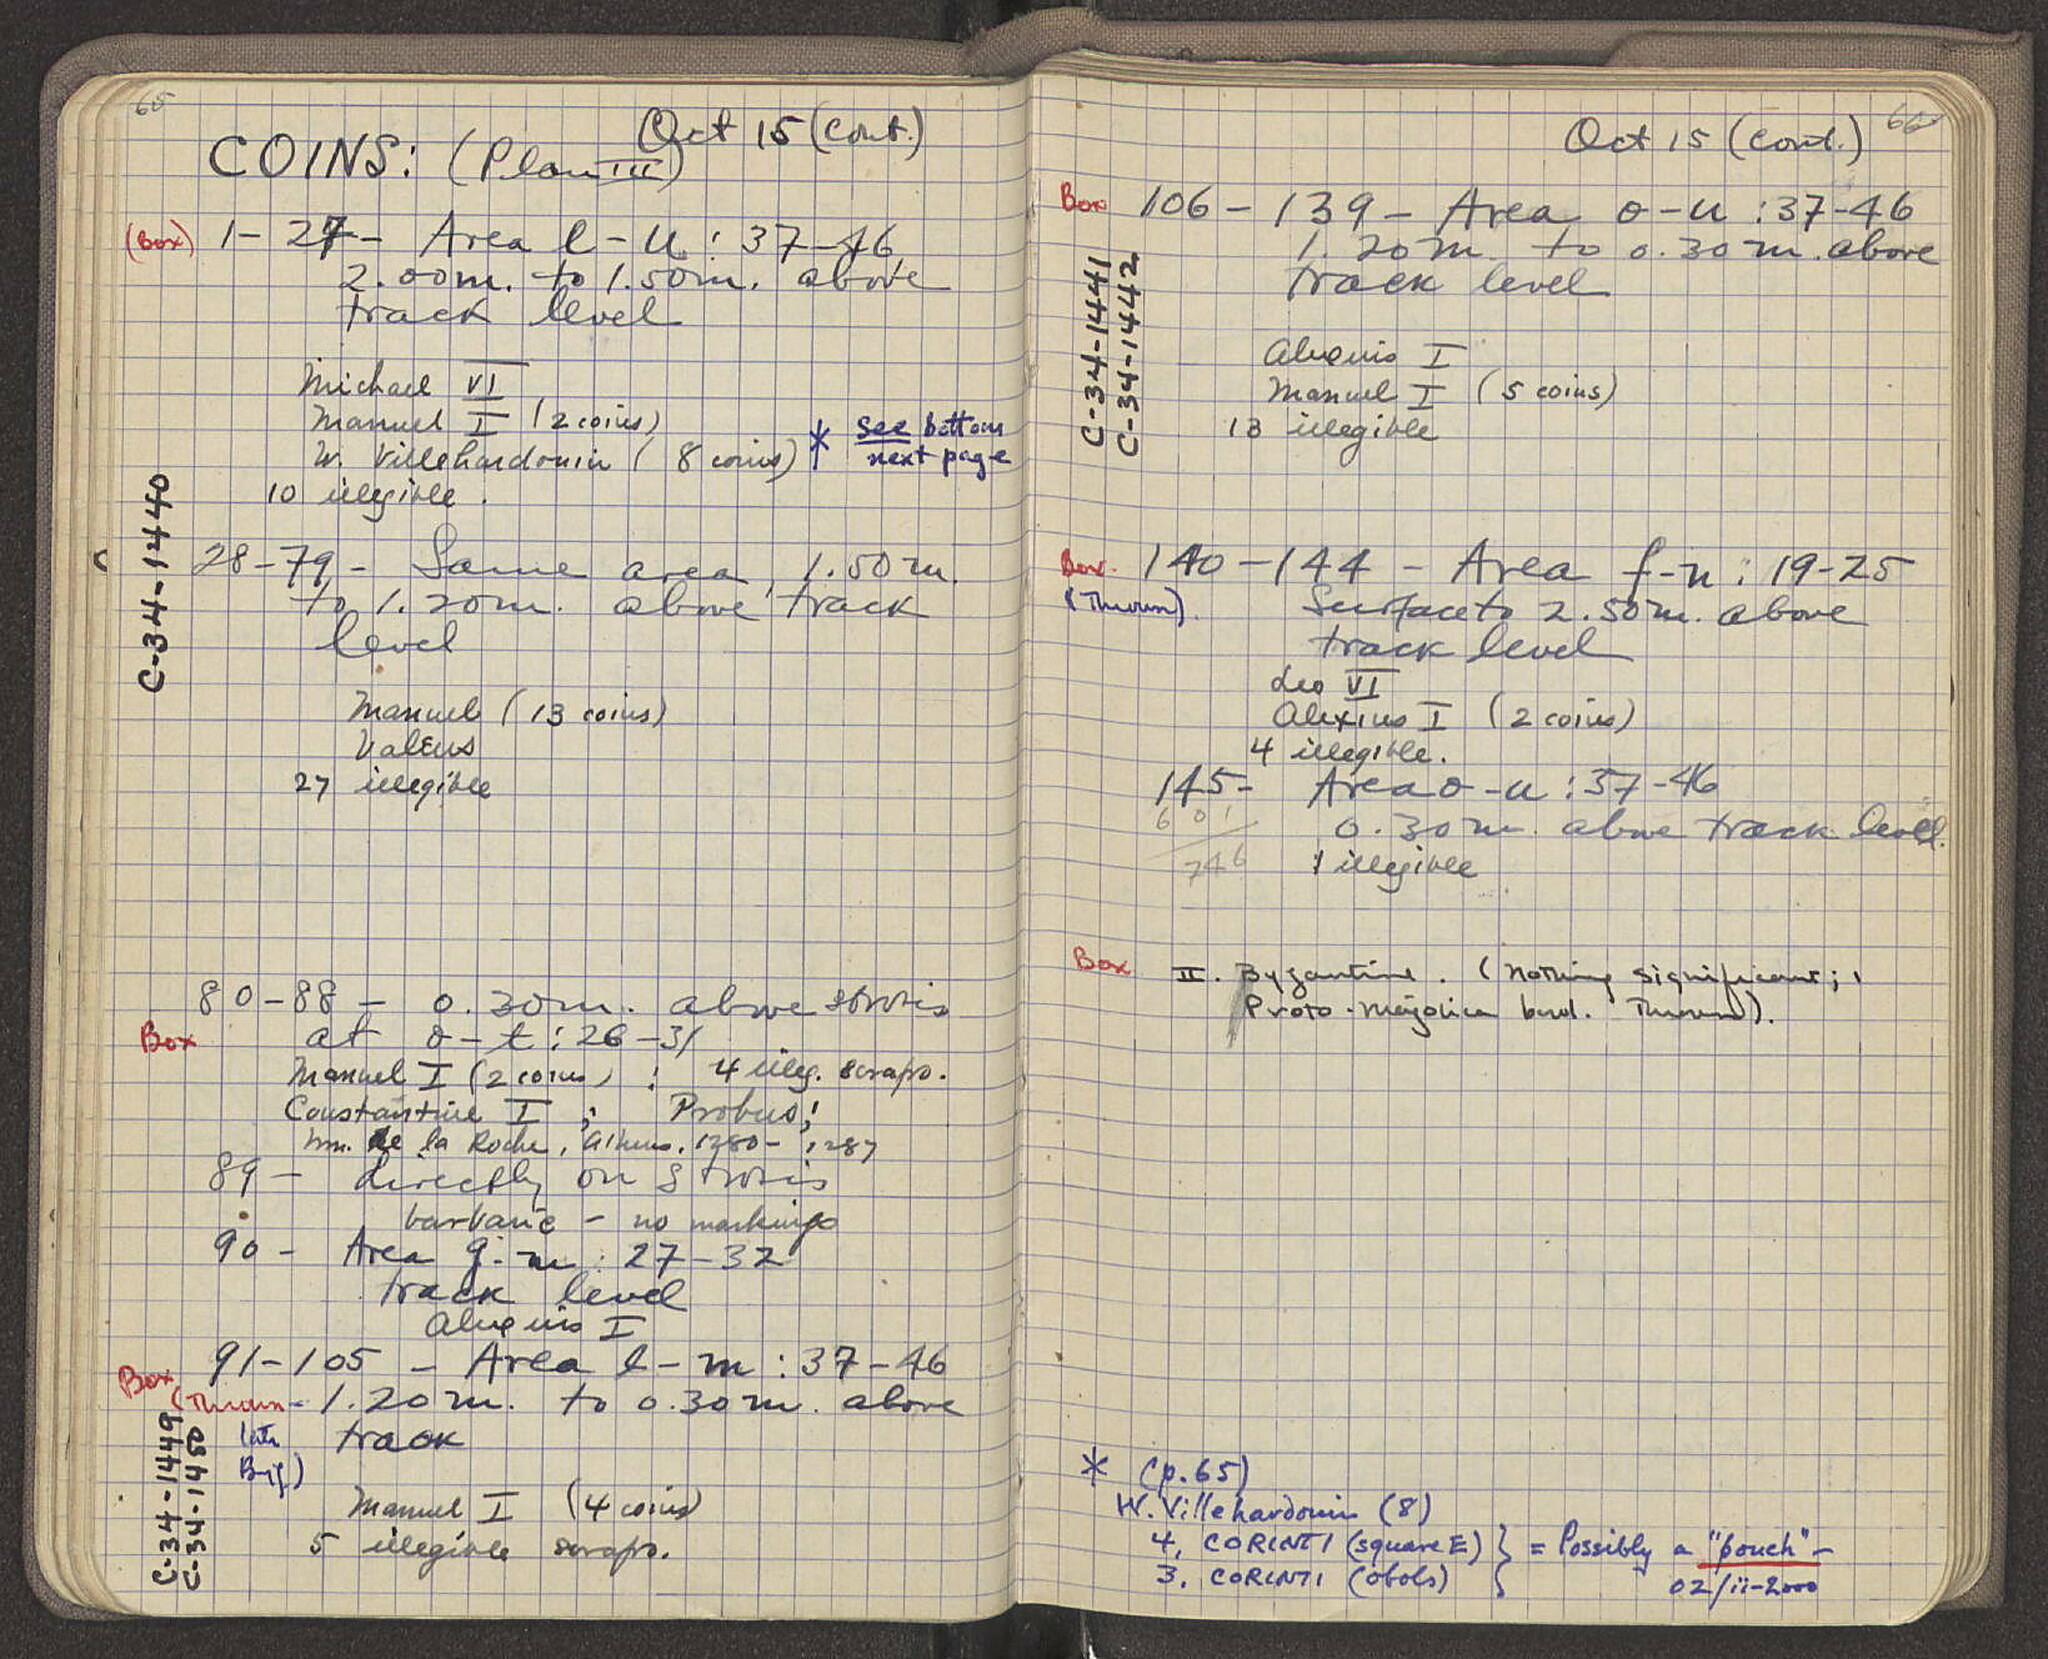 65
Oct 15 (cont.)
COINS: (Plan III)
(Box) 1-27 - Area l-u : 37-46
2.00m. to 1.50m. above
track level
Michael VI
Manuel I (2 coins)
W. Villehardouin (8 coins) * See bottom
next page
10 illegible.
C-34-1440
28-79 - Same area, 1.50m.
to 1.20m. above track
level
Manuel (13 coins)
Valens
27 illegible
80-88 - 0.30m. above stosis
Box at o-t : 26-31
Manuel I (2 coins) ; 4 illeg. scraps.
Constantine I ; Probus ;
de la Roche, Athens, 1280-1287
89 - directly on stosis
barbaric - no markings
90 - Area g-m : 27-32
track level
Alexius I
91-105 - Area l-m : 37-46
Box (Thrown - 1.20m. to 0.30m. above
late track
Byz)
C-34-1449
C-34-1450
Manuel I (4 coins)
5 illegible scraps.
66
Oct 15 (cont.)
Box 106-139 - Area o-u : 37-46
1.20m. to 0.30m. above
track level
C-34-14441
C-34-14442
Alexius I
Manuel I (5 coins)
13 illegible
Box. 140-144 - Area f-n : 19-25
(Thrown). Surface to 2.50m. above
track level
Leo VI
Alexius I (2 coins)
4 illegible.
145 - Area o-u : 37-46
601 0.30m. above track level.
746 1 illegible
Box II. Byzantine. (Nothing significant;
Proto-Majolica bowl. Thrown).
* (p.65)
W. Villehardouin (8)
4, CORINTI (square E) } = Possibly a "pouch" -
3, CORINTI (obols) } 02/ii-2000